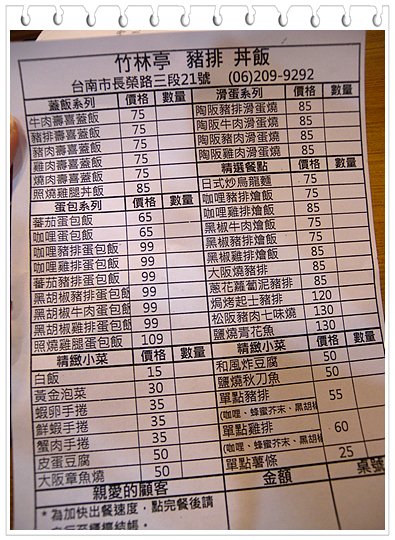 竹林亭 豬排 丼飯
台南市長榮路三段21號 (06)209-9292
蓋飯系列 價格 數量
牛肉壽喜蓋飯 75
豬排壽喜蓋飯 75
豬肉壽喜蓋飯 75
雞肉壽喜蓋飯 75
燒肉壽喜蓋飯 75
照燒雞腿丼飯 85
蛋包系列 價格 數量
蕃茄蛋包飯 65
咖哩蛋包飯 65
咖哩豬排蛋包飯 99
咖哩雞排蛋包飯 99
蕃茄豬排蛋包飯 99
黑胡椒豬排蛋包飯 99
黑胡椒牛肉蛋包飯 99
黑胡椒雞排蛋包飯 99
照燒雞腿蛋包飯 109
精緻小菜 價格 數量
白飯 15
黃金泡菜 30
蝦卵手捲 35
鮮蝦手捲 35
蟹肉手捲 35
皮蛋豆腐 50
大阪章魚燒 50
滑蛋系列 價格 數量
陶阪豬排滑蛋燒 85
陶阪牛肉滑蛋燒 85
陶阪豬肉滑蛋燒 85
陶阪雞肉滑蛋燒 85
精選餐點 價格 數量
日式炒烏龍麵 75
咖哩豬排燴飯 75
咖哩雞排燴飯 75
黑椒牛肉燴飯 75
黑椒豬排燴飯 75
黑椒雞排燴飯 75
大阪燒豬排 85
蔥花蘿蔔泥豬排 85
焗烤起士豬排 120
松阪豬肉七味燒 130
鹽燒青花魚 130
精緻小菜 價格 數量
和風炸豆腐 50
鹽燒秋刀魚 50
單點豬排 55
(咖哩、蜂蜜芥末、黑胡椒
單點雞排 60
(咖哩、蜂蜜芥末、黑胡椒
單點薯條 25
親愛的顧客 金額 桌號
* 為加快出餐速度，點完餐後請